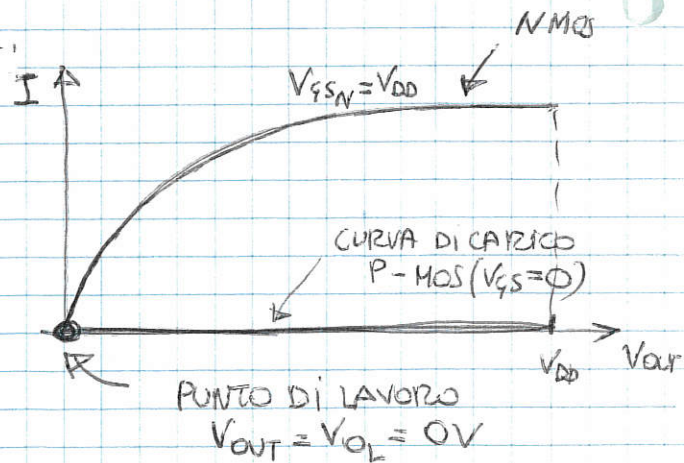 NMOS
I
VGSN = VDD
CURVA DI CARICO
P-MOS (VGS=0)
VDD
VOUT
PUNTO DI LAVORO
VOUT = VOL = 0V